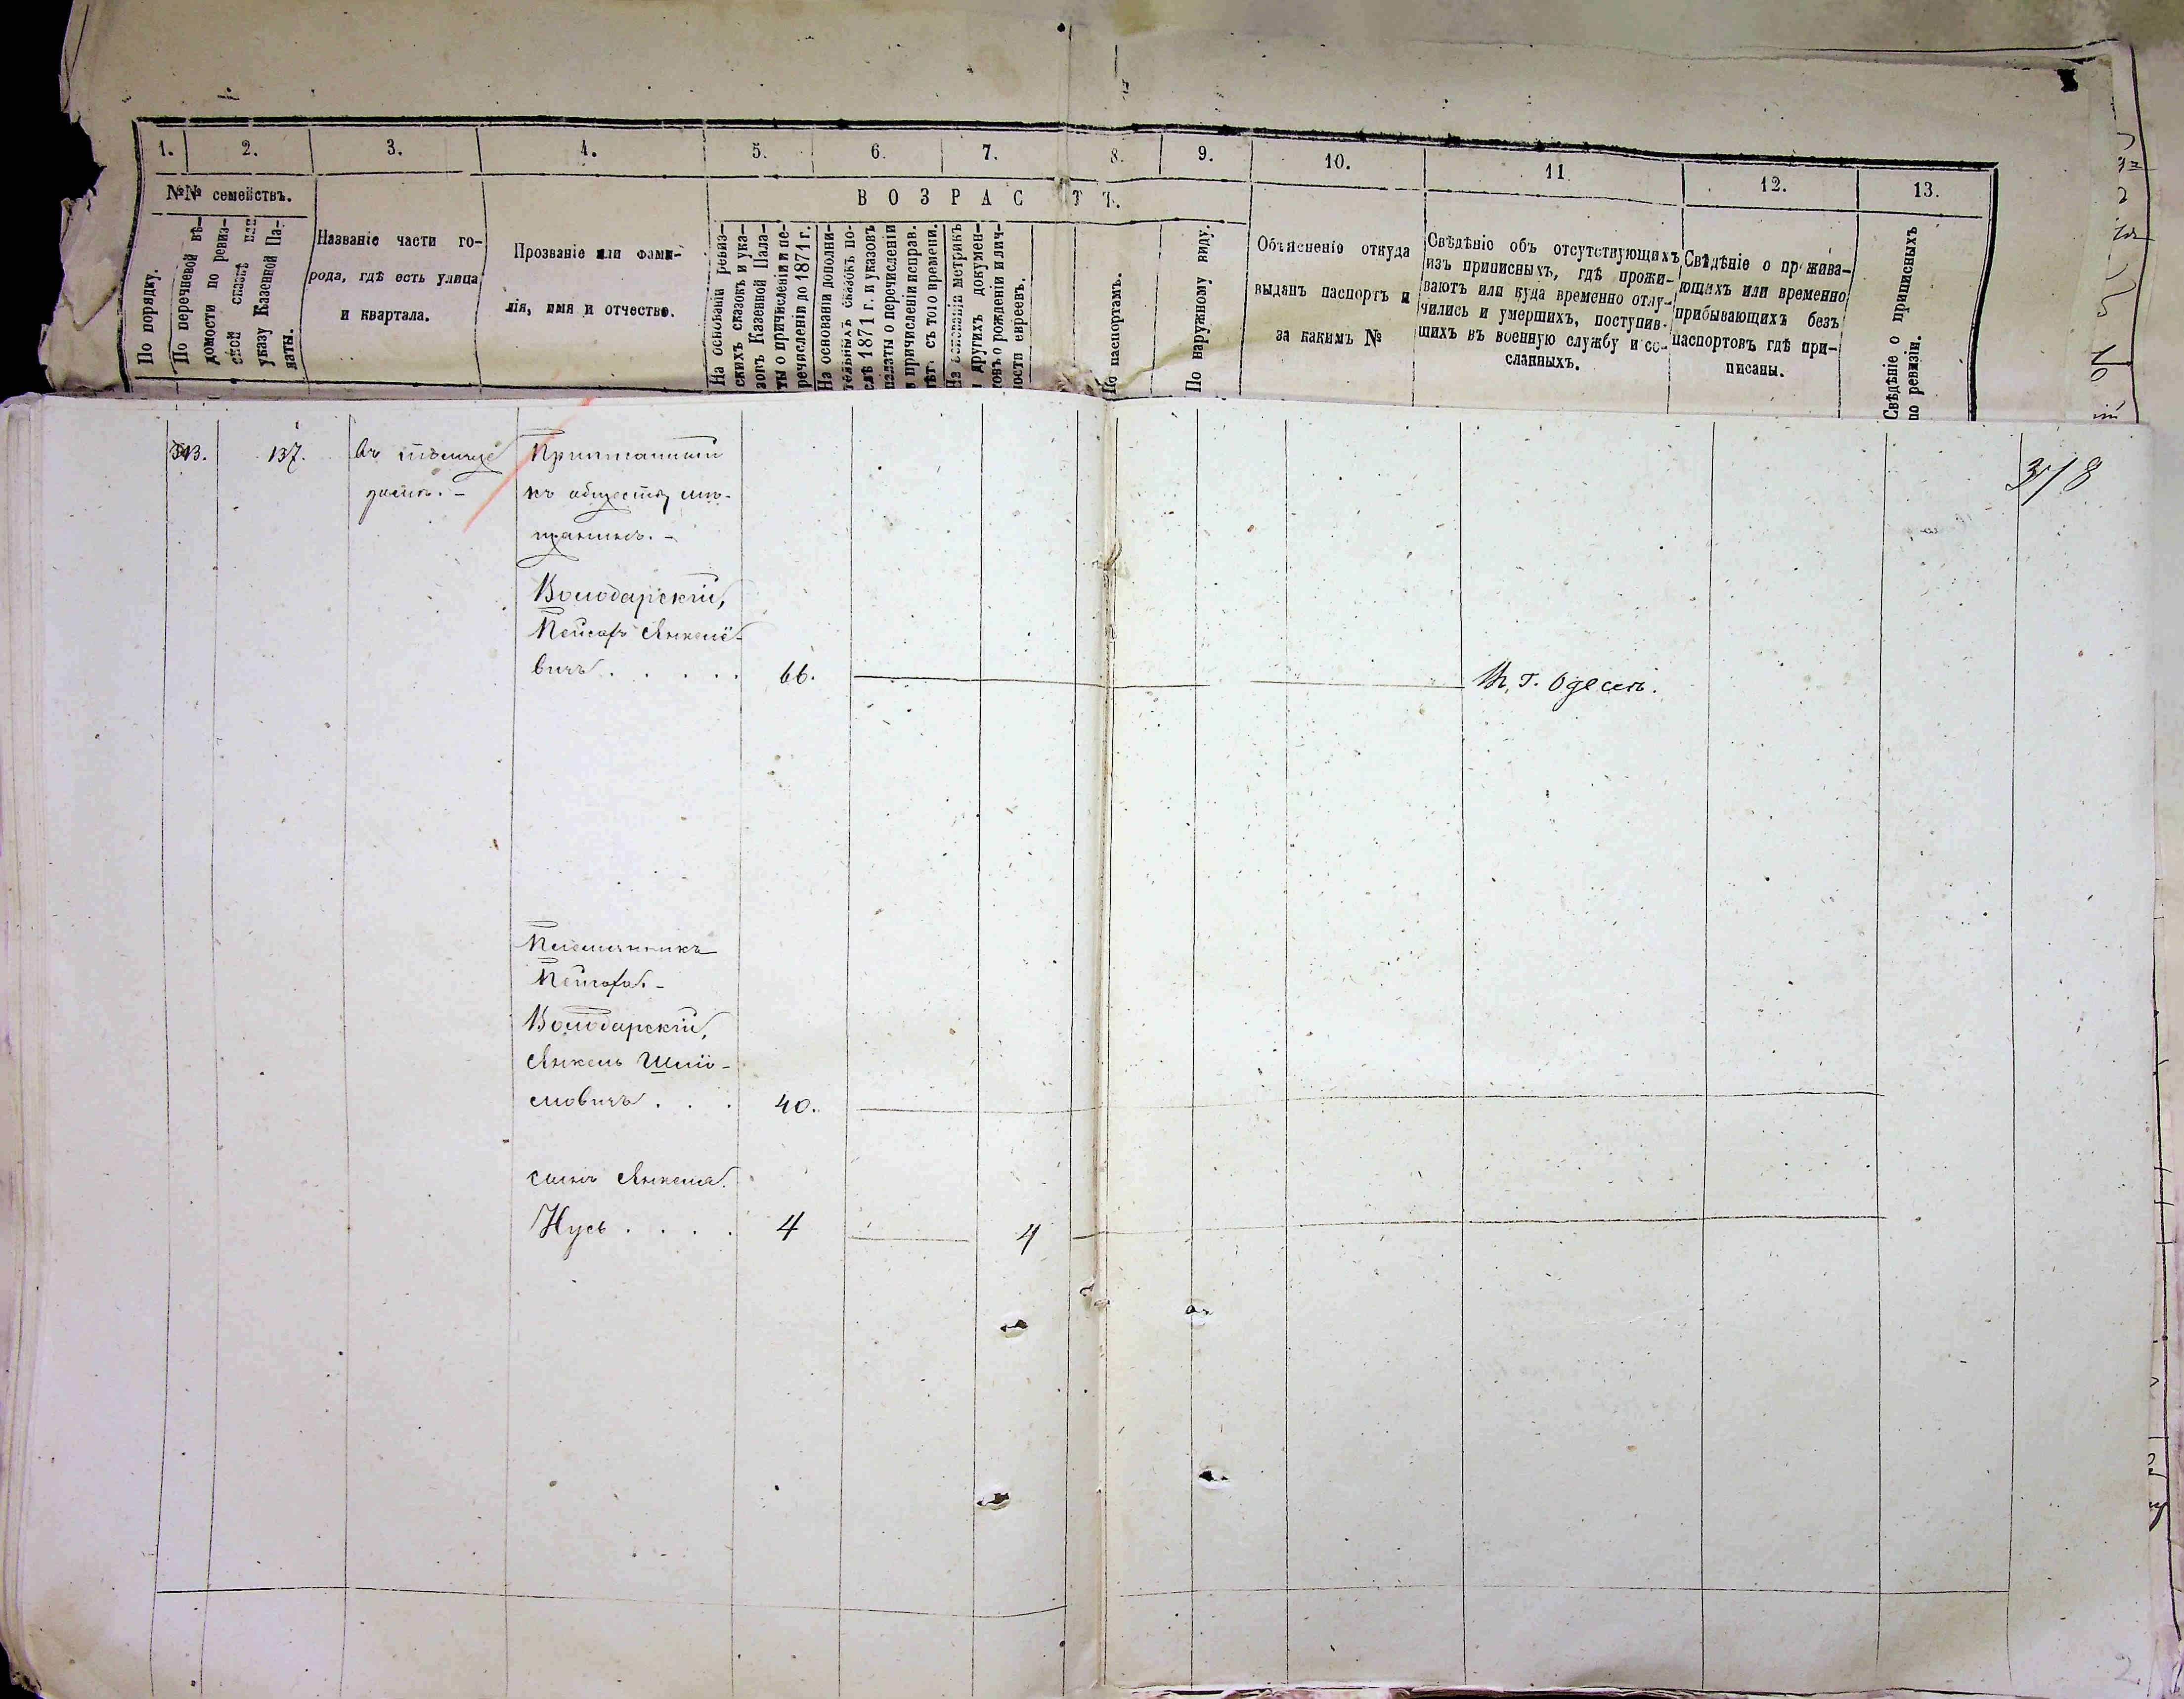 1. 2. 3. 4. 5. 6. 7. 8. 9. 10. 11. 12. 13.
№№ семействъ.
В О З Р А С Т Ъ.
По порядку.
По перечневой вѣ-
домости по ревиз-
ской сказкѣ или
указу Казенной Па-
латы.
Названіе части го-
рода, гдѣ есть улица
и квартала.
Прозваніе или фами-
лія, имя и отчество.
На основаніи ревиз-
скихъ сказокъ и ука-
зовъ Казеной Пала-
ты о причисленіи и пе-
речисленіи до 1871 г.
На основаніи дополни-
тельныхъ сказокъ по-
слѣ 1871 г. и указовъ
палаты о перечисленіи
и причисленіи исправ.
лѣт. съ того времени.
На основаніи метрикъ
и другихъ докумен-
товъ о рожденіи и лич-
ности евреевъ.
По паспортамъ.
По наружному виду.
Объясненіе откуда
выданъ паспортъ и
за какимъ №
Свѣдѣніе объ отсутствующихъ
изъ приписныхъ, гдѣ прожи-
ваютъ или куда временно отлу-
чились и умершихъ, поступив-
шихъ въ военную службу и со-
сланныхъ.
Свѣдѣніе о прожива-
ющихъ или временно
прибывающихъ безъ
паспортовъ гдѣ при-
писаны.
Свѣдѣніе о приписныхъ
по ревизіи.
318
343. 137.
Приписанный
къ обществу мѣ-
щанинъ. -
Володарскій,
Пейсахъ Янкелё-
вичъ . . . . . 66. Въ г. Одессѣ.
Племянникъ
Пейсаха. -
Володарскій,
Янкель Шлió-
мовичъ . . . 40.
сынъ Янкеля.
Нусь . . . . 4 4
2